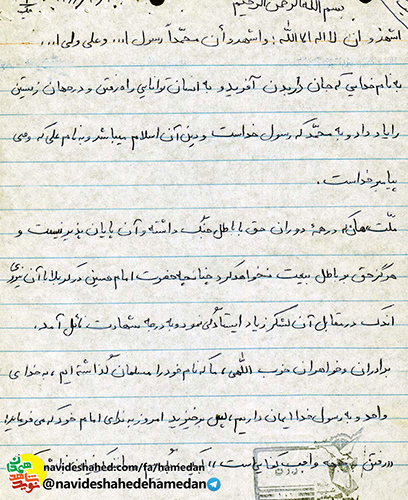 بسم الله الرحمن الرحیم
اشهد و ان لا اله الا الله و اشهد و أن محمّداً رسول ا... و علی ولی ا...
به نام خدایی که جان را به تن آفرید و به انسان توانایی راه رفتن و در جهان زیستن
را یاد داد و به محمّد که رسول خداست و دین آن اسلام میباشد و به نام علی که وصی
پیامبر خداست.
ملّت هائی که در همهٔ دوران حق با باطل جنگ داشته و آن پایان پذیر نیست و
هرگز حق بر باطل بیعت نخواهد کرد چنانچه حضرت امام حسین در کربلا با آن نیروی
اندک در مقابل آن لشکر زیاد ایستادگی نمود و به درجه شهادت نائل آمد.
برادران و خواهران حزب اللّهی، ما که نام خود را مسلمان گذاشته ایم، به خدای
واحد و به رسول خدا ایمان داریم، پس برخیزید امروز به ندای امام خود که می فرماید:
«رفتن به جبهه واجب کفایی است،»
navideshahed.com/fa/hamedan
@navideshahedehamedan